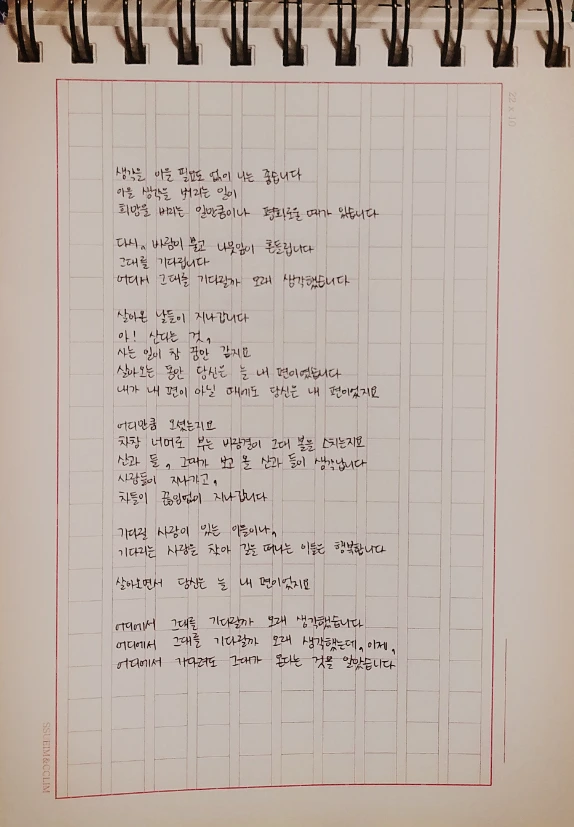 22 x 10
생각을 이을 필요도 없이 나는 좋습니다
이을 생각을 버리는 일이
희망을 버리는 일만큼이나 평화로울 때가 있습니다
다시, 바람이 불고 나뭇잎이 흔들립니다
그대를 기다립니다
어디서 그대를 기다릴까 오래 생각했습니다
살아온 날들이 지나갑니다
아! 산다는 것,
사는 일이 참 꿈만 같지요
살아오는 동안 당신은 늘 내 편이었습니다
내가 내 편이 아닐 때에도 당신은 내 편이었지요
어디만큼 오셨는지요
차창 너머로 부는 바람결이 그대 볼을 스치는지요
산과 들, 그대가 보고 올 산과 들이 생각납니다
사람들이 지나가고,
차들이 끊임없이 지나갑니다
기다릴 사람이 있는 이들이나,
기다리는 사람을 찾아 길을 떠나는 이들은 행복합니다
살아오면서 당신은 늘 내 편이었지요
어디에서 그대를 기다릴까 오래 생각했습니다
어디에서 그대를 기다릴까 오래 생각했는데, 이제,
어디에서 기다려도 그대가 온다는 것을 알았습니다